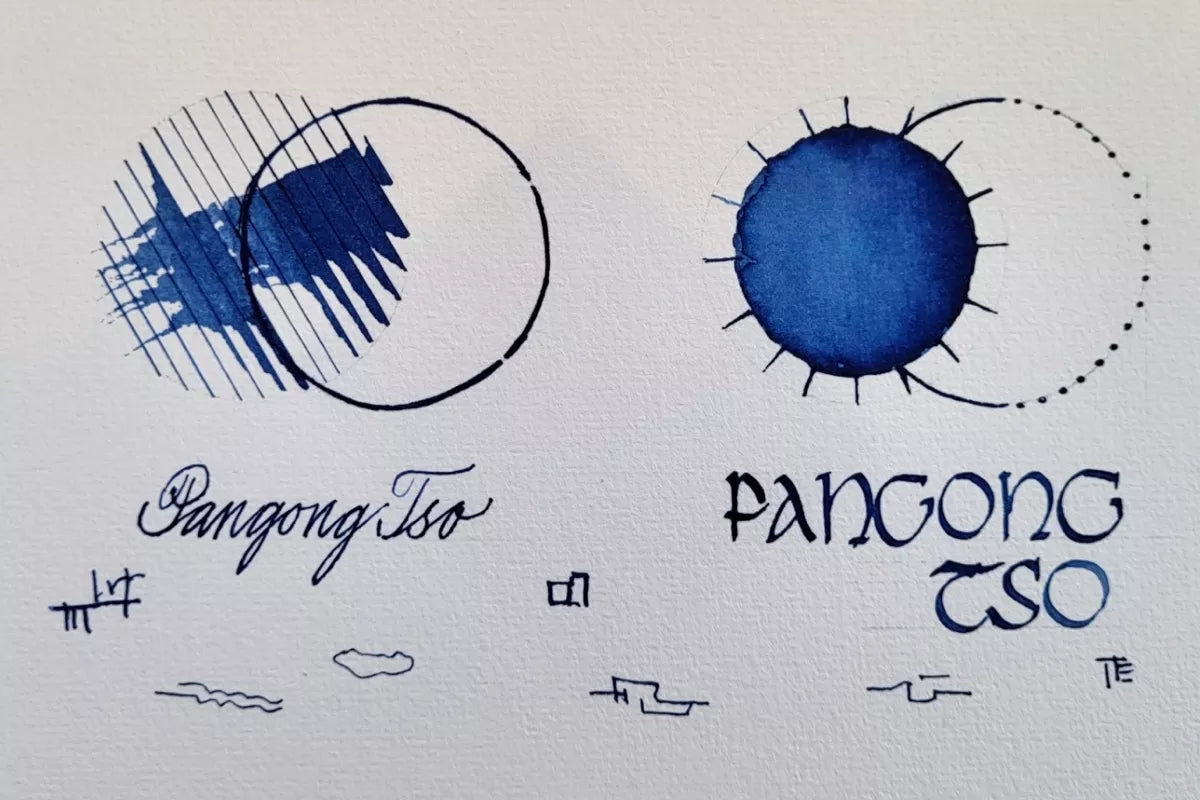 Pangong Tso
PANGONG
TSO